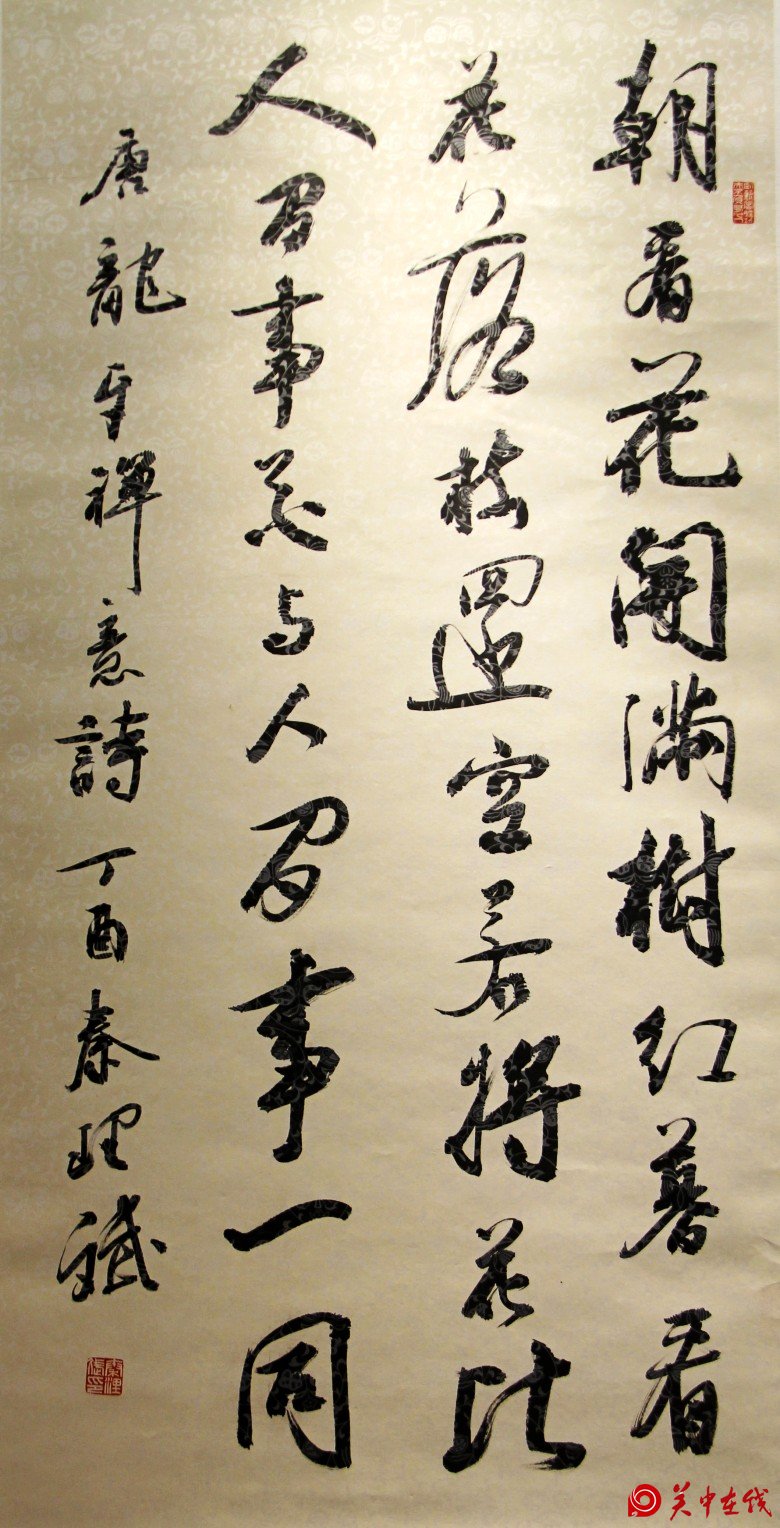 朝看花開滿樹紅暮看
花落樹還空若將花比
人間事花与人間事一同
唐龍牙禪意詩 丁酉秦
关中在线